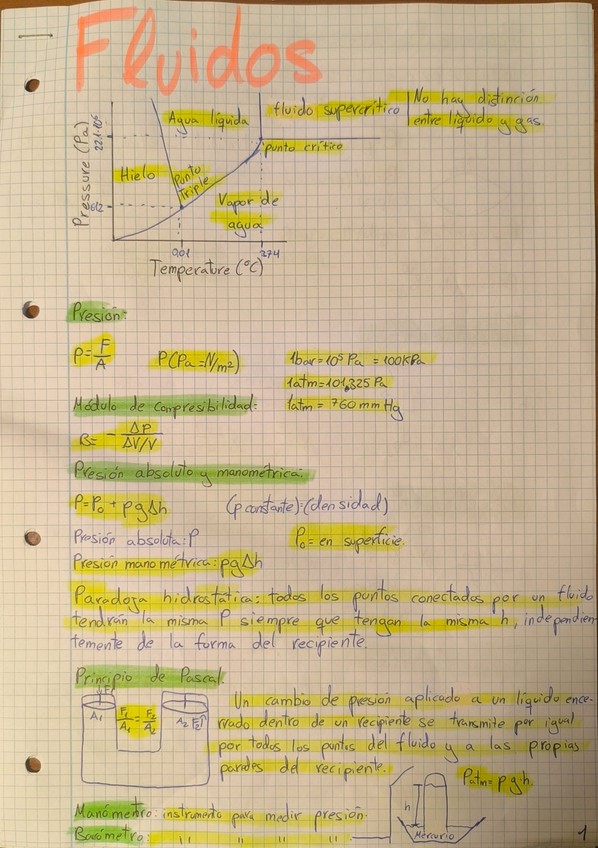 Fluidos
Pressure (Pa)
22.1·10⁶
612
Agua líquida
fluido supercrítico
No hay distinción
entre líquido y gas.
punto crítico
Hielo
Punto
Triple
Vapor de
agua
0,01
374
Temperature (°C)
Presión:
P = F/A
P(Pa = N/m²)
1bar = 10⁵ Pa = 100KPa
1atm = 101,325 Pa
Módulo de compresibilidad:
1atm = 760 mm Hg
B = - ΔP / ΔV/V
Presión absoluta y manométrica:
P = P₀ + ρgΔh
(ρ constante)·(densidad)
Presión absoluta: P
P₀ = en superficie
Presión manométrica: ρgΔh
Paradoja hidrostática: todos los puntos conectados por un fluido
tendrán la misma P siempre que tengan la misma h, independien-
temente de la forma del recipiente.
Principio de Pascal
F₁
A₁
F₁/A₁ = F₂/A₂
A₂
F₂
Un cambio de presión aplicado a un líquido ence-
rrado dentro de un recipiente se transmite por igual
por todos los puntos del fluido y a las propias
parades del recipiente.
Patm = ρ g·h.
h
Mercurio
Manómentro: instrumento para medir presión.
Barómetro: " " " "
1